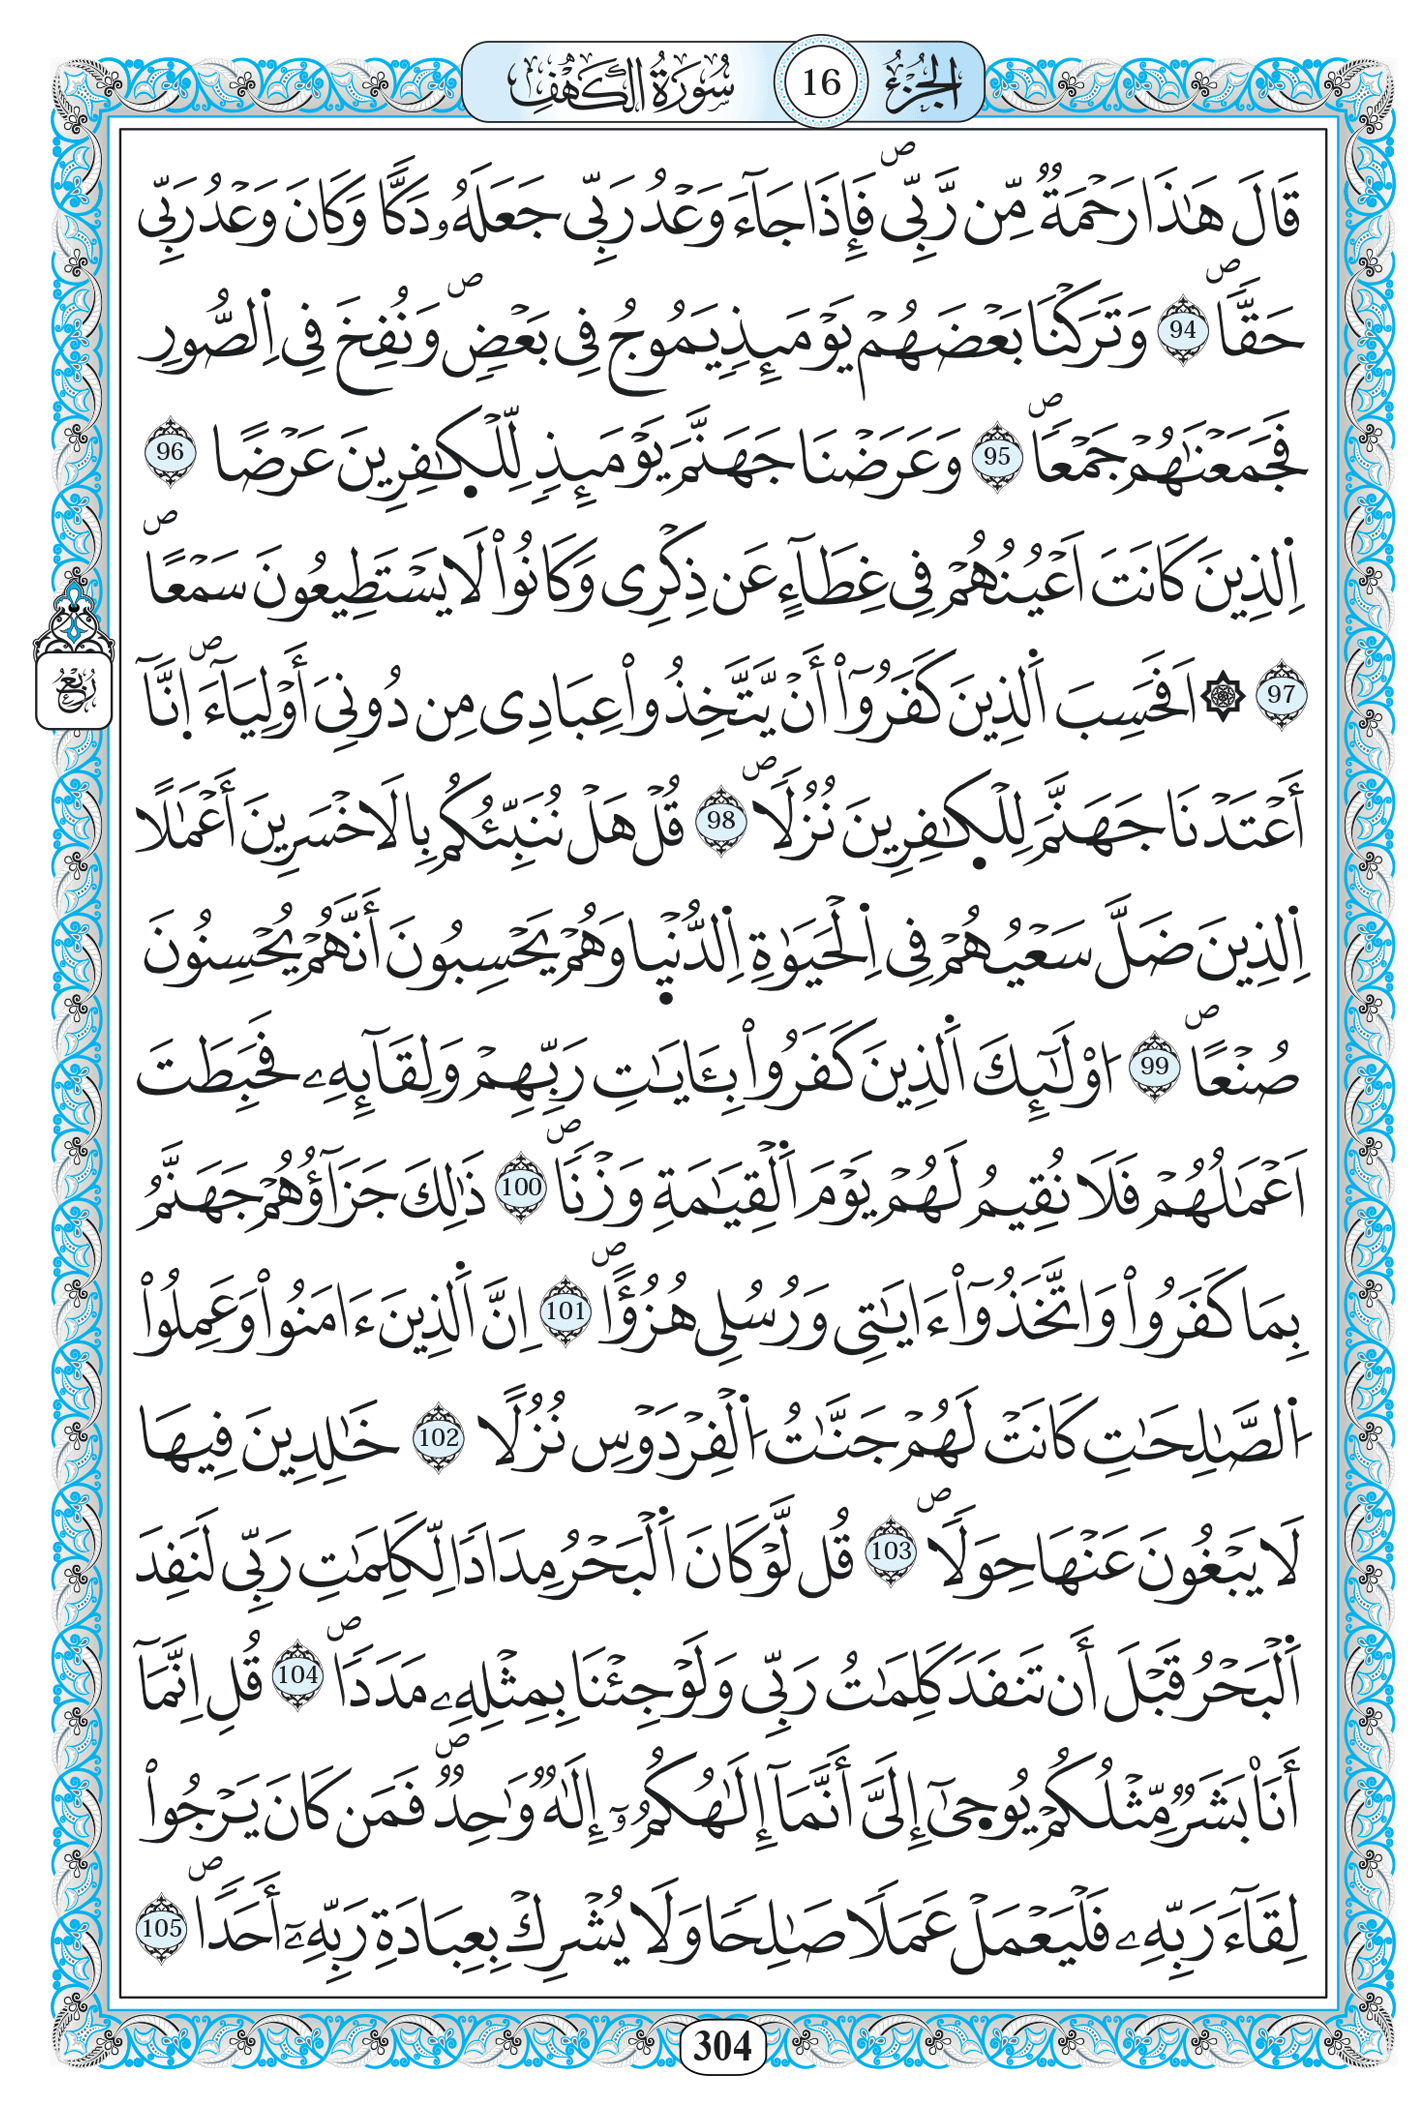 الجزء 16 سورة الكهف
قَالَ هَٰذَا رَحْمَةٌ مِّن رَّبِّى ۖ فَإِذَا جَآءَ وَعْدُ رَبِّى جَعَلَهُۥ دَكّٗا وَكَانَ وَعْدُ رَبِّى
حَقّٗا ۖ 94 وَتَرَكْنَا بَعْضَهُمْ يَوْمَئِذٖ يَمُوجُ فِى بَعْضٖ ۖ وَنُفِخَ فِى اِ۬لصُّورِ
فَجَمَعْنَٰهُمْ جَمْعٗا ۖ 95 وَعَرَضْنَا جَهَنَّمَ يَوْمَئِذٖ لِّلْكٰ۪فِرِينَ عَرْضًا 96
اِ۬لذِينَ كَانَتَ اَعْيُنُهُمْ فِى غِطَآءٍ عَن ذِكْرِى وَكَانُواْ لَا يَسْتَطِيعُونَ سَمْعًا ۖ
97 ۞ اَفَحَسِبَ اَ۬لذِينَ كَفَرُوٓاْ أَنْ يَّتَّخِذُواْ عِبَادِى مِن دُونِىَ أَوْلِيَآءَ ۖ انَّآ
أَعْتَدْنَا جَهَنَّمَ لِلْكٰ۪فِرِينَ نُزُلٗا ۖ 98 قُلْ هَلْ نُنَبِّئُكُم بِالَاخْسَرِينَ أَعْمَٰلًا
اِ۬لذِينَ ضَلَّ سَعْيُهُمْ فِى اِ۬لْحَيَوٰةِ اِ۬لدُّنْي۪ا وَهُمْ يَحْسِبُونَ أَنَّهُمْ يُحْسِنُونَ
صُنْعًا ۖ 99 اوْلَٰٓئِكَ اَ۬لذِينَ كَفَرُواْ بِـَٔايَٰتِ رَبِّهِمْ وَلِقَآئِهِۦ فَحَبِطَتَ
اَعْمَٰلُهُمْ فَلَا نُقِيمُ لَهُمْ يَوْمَ اَ۬لْقِيَٰمَةِ وَزْنٗا ۖ 100 ذَٰلِكَ جَزَآؤُهُمْ جَهَنَّمُ
بِمَا كَفَرُواْ وَاتَّخَذُوٓاْ ءَايَٰتِى وَرُسُلِى هُزُؤًا ۖ 101 اِنَّ اَ۬لذِينَ ءَامَنُواْ وَعَمِلُواْ
اُ۬لصَّٰلِحَٰتِ كَانَتْ لَهُمْ جَنَّٰتُ اُ۬لْفِرْدَوْسِ نُزُلًا 102 خَٰلِدِينَ فِيهَا
لَا يَبْغُونَ عَنْهَا حِوَلٗا ۖ 103 قُل لَّوْ كَانَ اَ۬لْبَحْرُ مِدَادٗا لِّكَلِمَٰتِ رَبِّى لَنَفِدَ
اَ۬لْبَحْرُ قَبْلَ أَن تَنفَدَ كَلِمَٰتُ رَبِّى وَلَوْ جِئْنَا بِمِثْلِهِۦ مَدَدٗا ۖ 104 قُلِ اِنَّمَآ
أَنَا۠ بَشَرٌ مِّثْلُكُمْ يُوح۪ىٰٓ إِلَىَّ أَنَّمَآ إِلَٰهُكُمُۥٓ إِلَٰهٌ وَٰحِدٌ ۖ فَمَن كَانَ يَرْجُواْ
لِقَآءَ رَبِّهِۦ فَلْيَعْمَلْ عَمَلٗا صَٰلِحٗا وَلَا يُشْرِكْ بِعِبَادَةِ رَبِّهِۦٓ أَحَدٗا ۖ 105
ربع
304